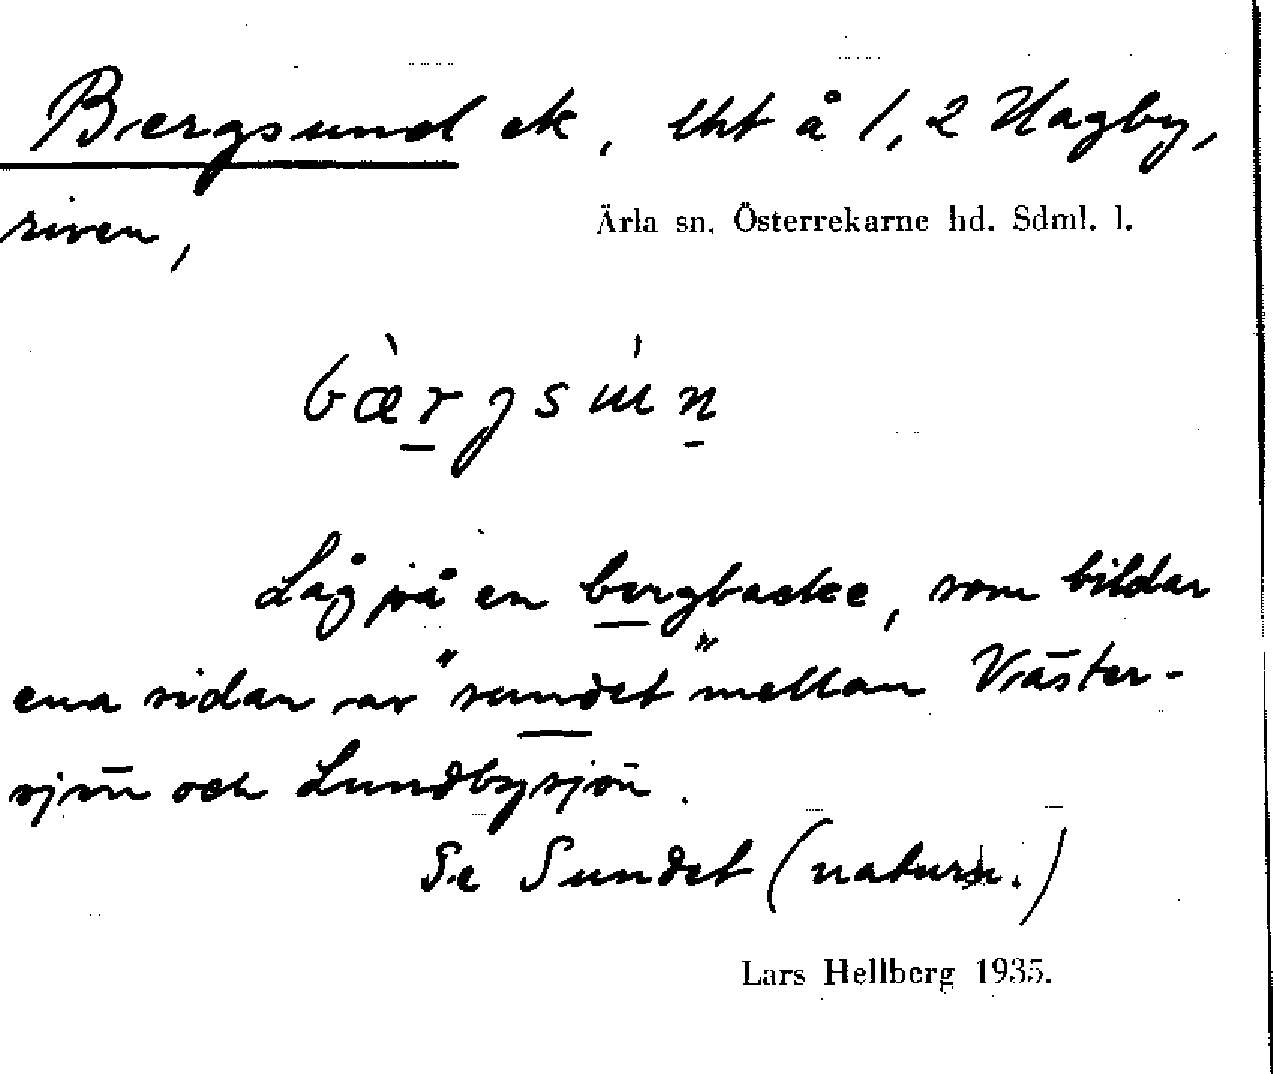 Bergsund ek, lht å 1, 2 Hagby,
riven,
Ärla sn. Österrekarne hd. Sdml. l.
bæ̀rgsún
Låg på en bergbacke, som bildar
ena sidan av "sundet" mellan Väster-
sjön och Lundbysjön.
Se Sundet (naturn.)
Lars Hellberg 1935.